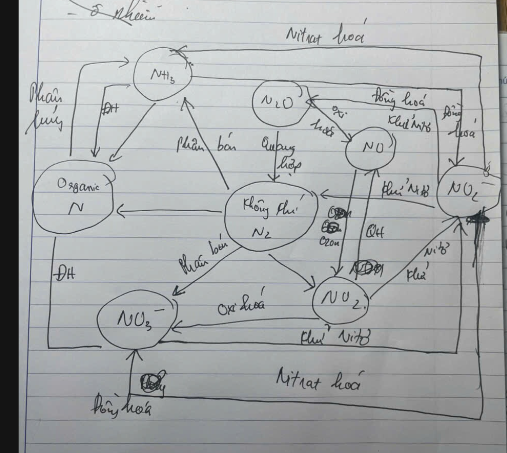 - ô nhiễm
Nitrat hoá
NH3
Phân huỷ
ĐH
N2O
Đồng hoá
Khử Nitơ
Oxi hoá
Đồng hoá
Phân bón
Quang hợp
NO
NO2-
Organic N
Không khí N2
Khử Nitơ
Ozon
QH
Nitơ
Khử
Phân bón
ĐH
NO3-
Oxi hoá
NO2
Khử Nitơ
Nitrat hoá
Đồng hoá